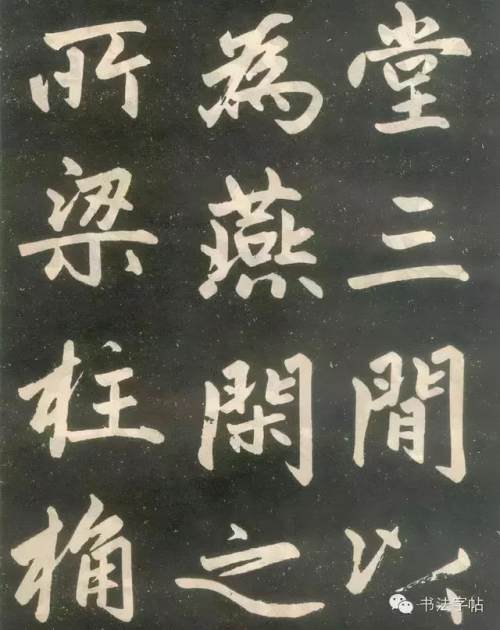 堂三間以
為燕閑之
所梁柱桷
书法字帖